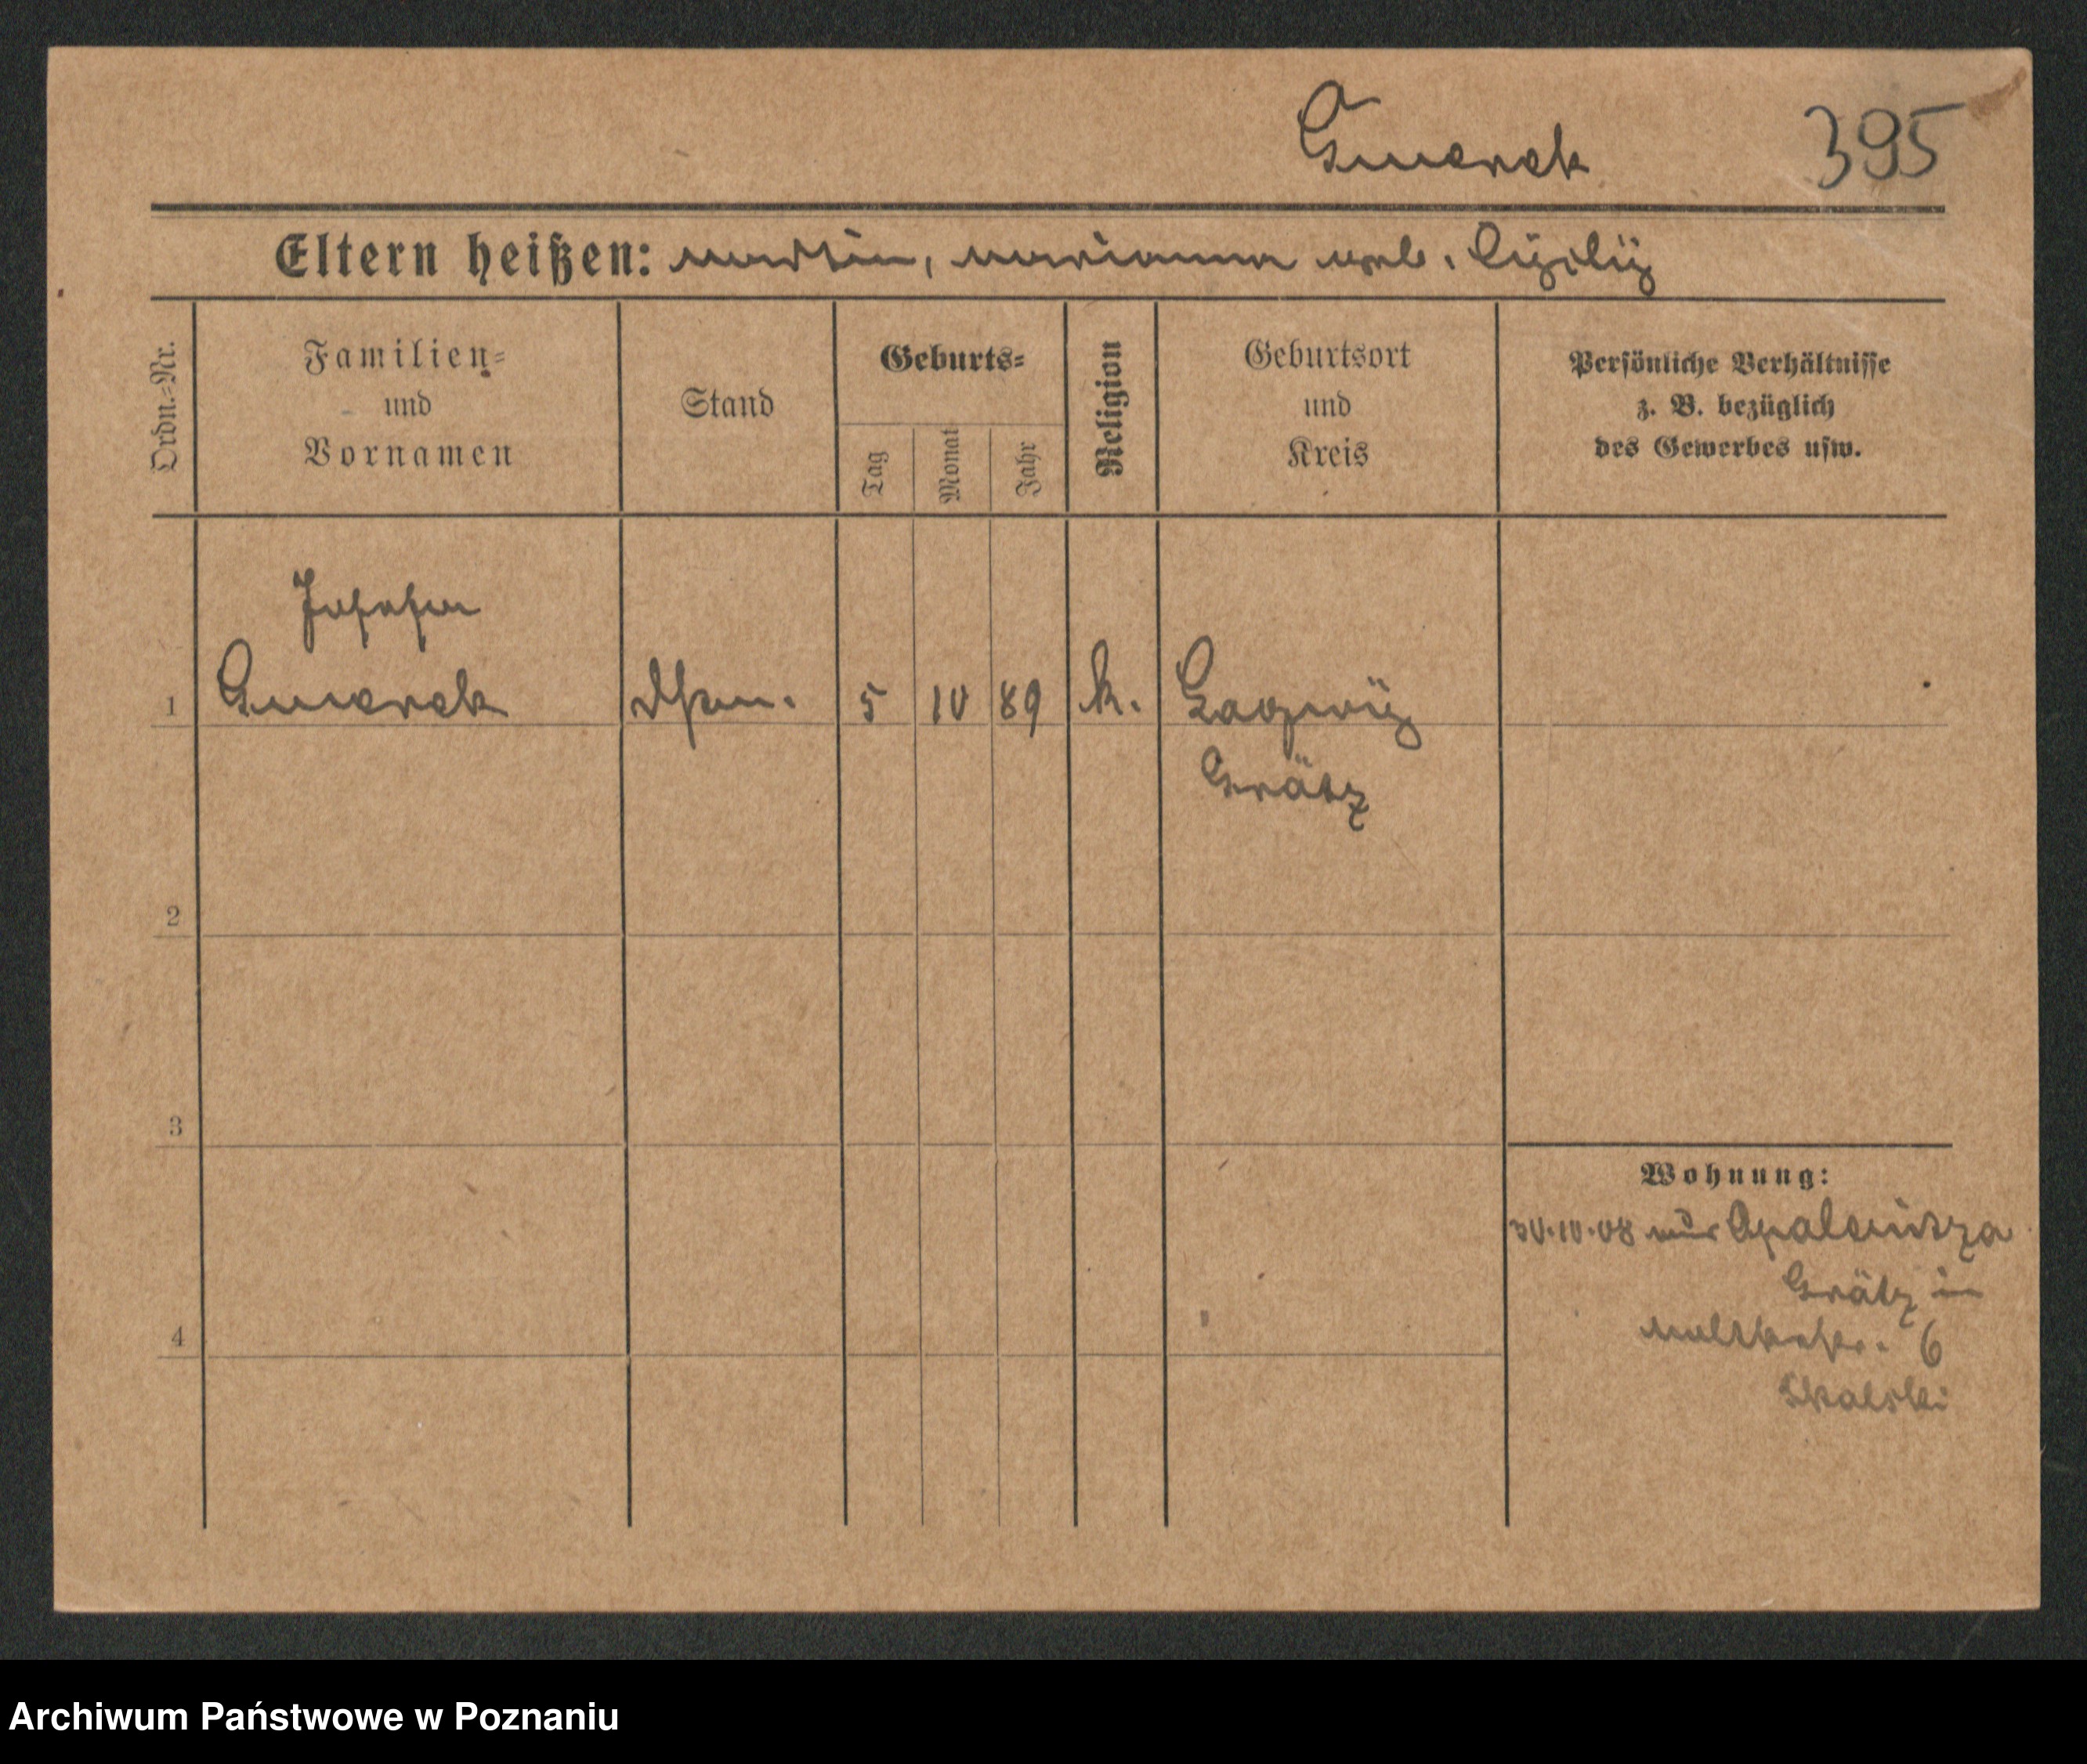 Gmerek 395
Eltern heißen: Martin, Marianna geb.
Ordn.=Nr.
Familien=
und
Vornamen
Stand
Geburts=
Tag
Monat
Jahr
Religion
Geburtsort
und
Kreis
Persönliche Verhältnisse
z. B. bezüglich
des Gewerbes usw.
Josefa
1 Gmerek 5 10 89 k.
Grätz
2
3
4
Wohnung:
30.10.08 aus Opalenitza
Grätz in
6
Skalski
Archiwum Państwowe w Poznaniu